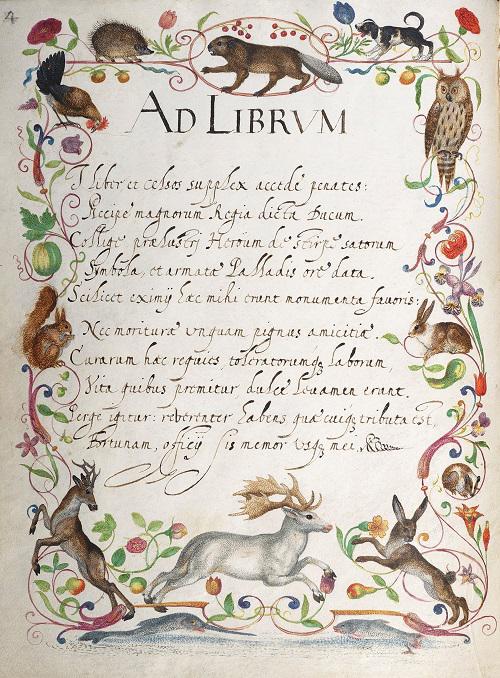 4
AD LIBRVM
I liber et celsos supplex accede penates:
Recipe magnorum Regia dicta Ducum.
Collige prælustrj Heröum de stirpe satorum
Symbola, et armatæ Palladis ore data.
Scilicet eximij hæc mihi erunt monumenta favoris:
Nec morituræ vnquam pignus amicitiæ.
Curarum hæc requies, toleratorumq₃ laborum,
Vita quibus premitur dulce levamen erunt.
Perge igitur: reverenter habens quæ cuiq₃ tributa est,
Fortunam, officij sis memor vsq₃ mei.